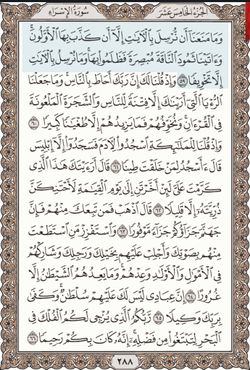 الجزء الخامس عشر
سورة الإسراء
وَمَا مَنَعَنَا أَن نُّرْسِلَ بِالْآيَاتِ إِلَّا أَن كَذَّبَ بِهَا الْأَوَّلُونَ
وَءَاتَيْنَا ثَمُودَ النَّاقَةَ مُبْصِرَةً فَظَلَمُوا بِهَا وَمَا نُرْسِلُ بِالْآيَاتِ
إِلَّا تَخْوِيفًا ٥٩ وَإِذْ قُلْنَا لَكَ إِنَّ رَبَّكَ أَحَاطَ بِالنَّاسِ وَمَا جَعَلْنَا
الرُّءْيَا الَّتِي أَرَيْنَاكَ إِلَّا فِتْنَةً لِّلنَّاسِ وَالشَّجَرَةَ الْمَلْعُونَةَ
فِي الْقُرْءَانِ وَنُخَوِّفُهُمْ فَمَا يَزِيدُهُمْ إِلَّا طُغْيَانًا كَبِيرًا ٦٠
وَإِذْ قُلْنَا لِلْمَلَائِكَةِ اسْجُدُوا لِآدَمَ فَسَجَدُوا إِلَّا إِبْلِيسَ
قَالَ ءَأَسْجُدُ لِمَنْ خَلَقْتَ طِينًا ٦١ قَالَ أَرَءَيْتَكَ هَذَا الَّذِي
كَرَّمْتَ عَلَيَّ لَئِنْ أَخَّرْتَنِ إِلَى يَوْمِ الْقِيَامَةِ لَأَحْتَنِكَنَّ
ذُرِّيَّتَهُ إِلَّا قَلِيلًا ٦٢ قَالَ اذْهَبْ فَمَن تَبِعَكَ مِنْهُمْ فَإِنَّ
جَهَنَّمَ جَزَاؤُكُمْ جَزَاءً مَّوْفُورًا ٦٣ وَاسْتَفْزِزْ مَنِ اسْتَطَعْتَ
مِنْهُم بِصَوْتِكَ وَأَجْلِبْ عَلَيْهِم بِخَيْلِكَ وَرَجِلِكَ وَشَارِكْهُمْ
فِي الْأَمْوَالِ وَالْأَوْلَادِ وَعِدْهُمْ وَمَا يَعِدُهُمُ الشَّيْطَانُ إِلَّا
غُرُورًا ٦٤ إِنَّ عِبَادِي لَيْسَ لَكَ عَلَيْهِمْ سُلْطَانٌ وَكَفَى
بِرَبِّكَ وَكِيلًا ٦٥ رَّبُّكُمُ الَّذِي يُزْجِي لَكُمُ الْفُلْكَ فِي
الْبَحْرِ لِتَبْتَغُوا مِن فَضْلِهِ إِنَّهُ كَانَ بِكُمْ رَحِيمًا ٦٦
٢٨٨